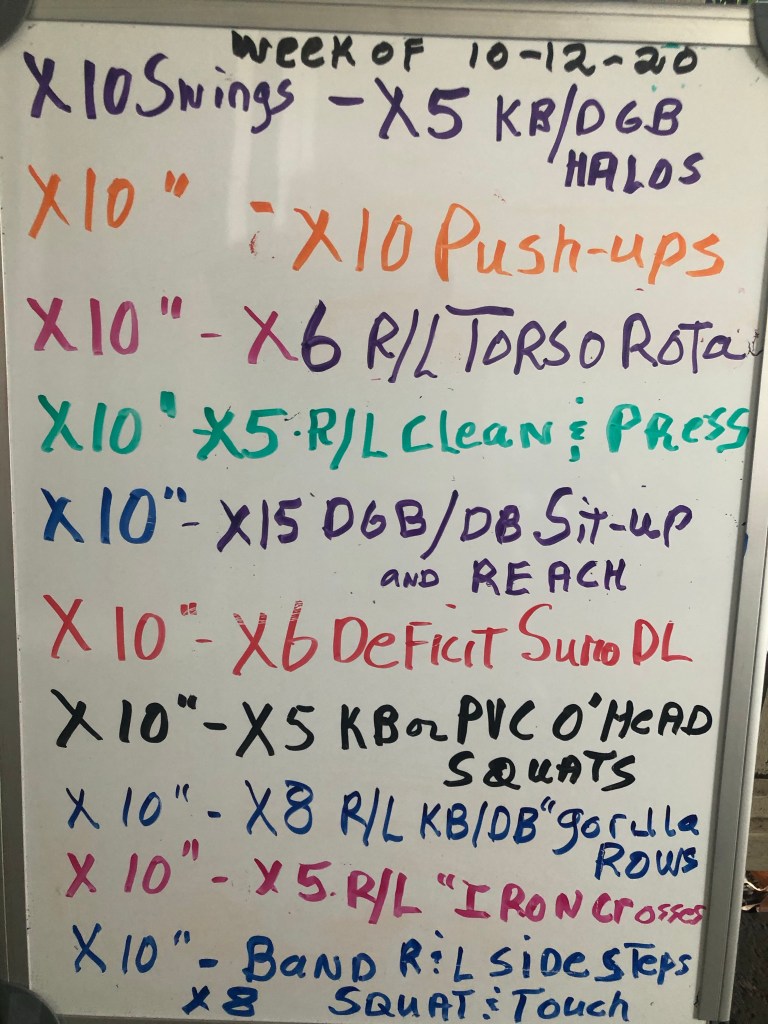 WEEK OF 10-12-20
X10 Swings - X5 KB/DGB
HALOS
X10 " - X10 Push-ups
X10 " - X6 R/L TORSO ROTA
X10 " X5 R/L Clean & PRESS
X10 " - X15 DGB/DB Sit-up
AND REACH
X10 " - X6 DeFicit Sumo DL
X10 " - X5 KB or PVC O'HeAD
SQUATS
X10 " - X8 R/L KB/DB "gorilla
ROWS
X10 " - X5 R/L "IRON Crosses
X10 " - BAND R & L SIDE STEPS
X8 SQUAT & Touch